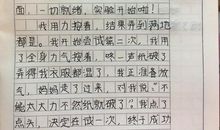 面，一切就绪，实验开始啦！
我用力拽着，结果弄到满地
都是。我开始尝试第二次，我用
了全身力气拽着，咔一声纸破了
弄得我衣服都湿了，我正准备放
气，妈妈走了过来，对我说："不
能太大力不然纸就破了"，我点了
点头，决定在试一次，终于成功